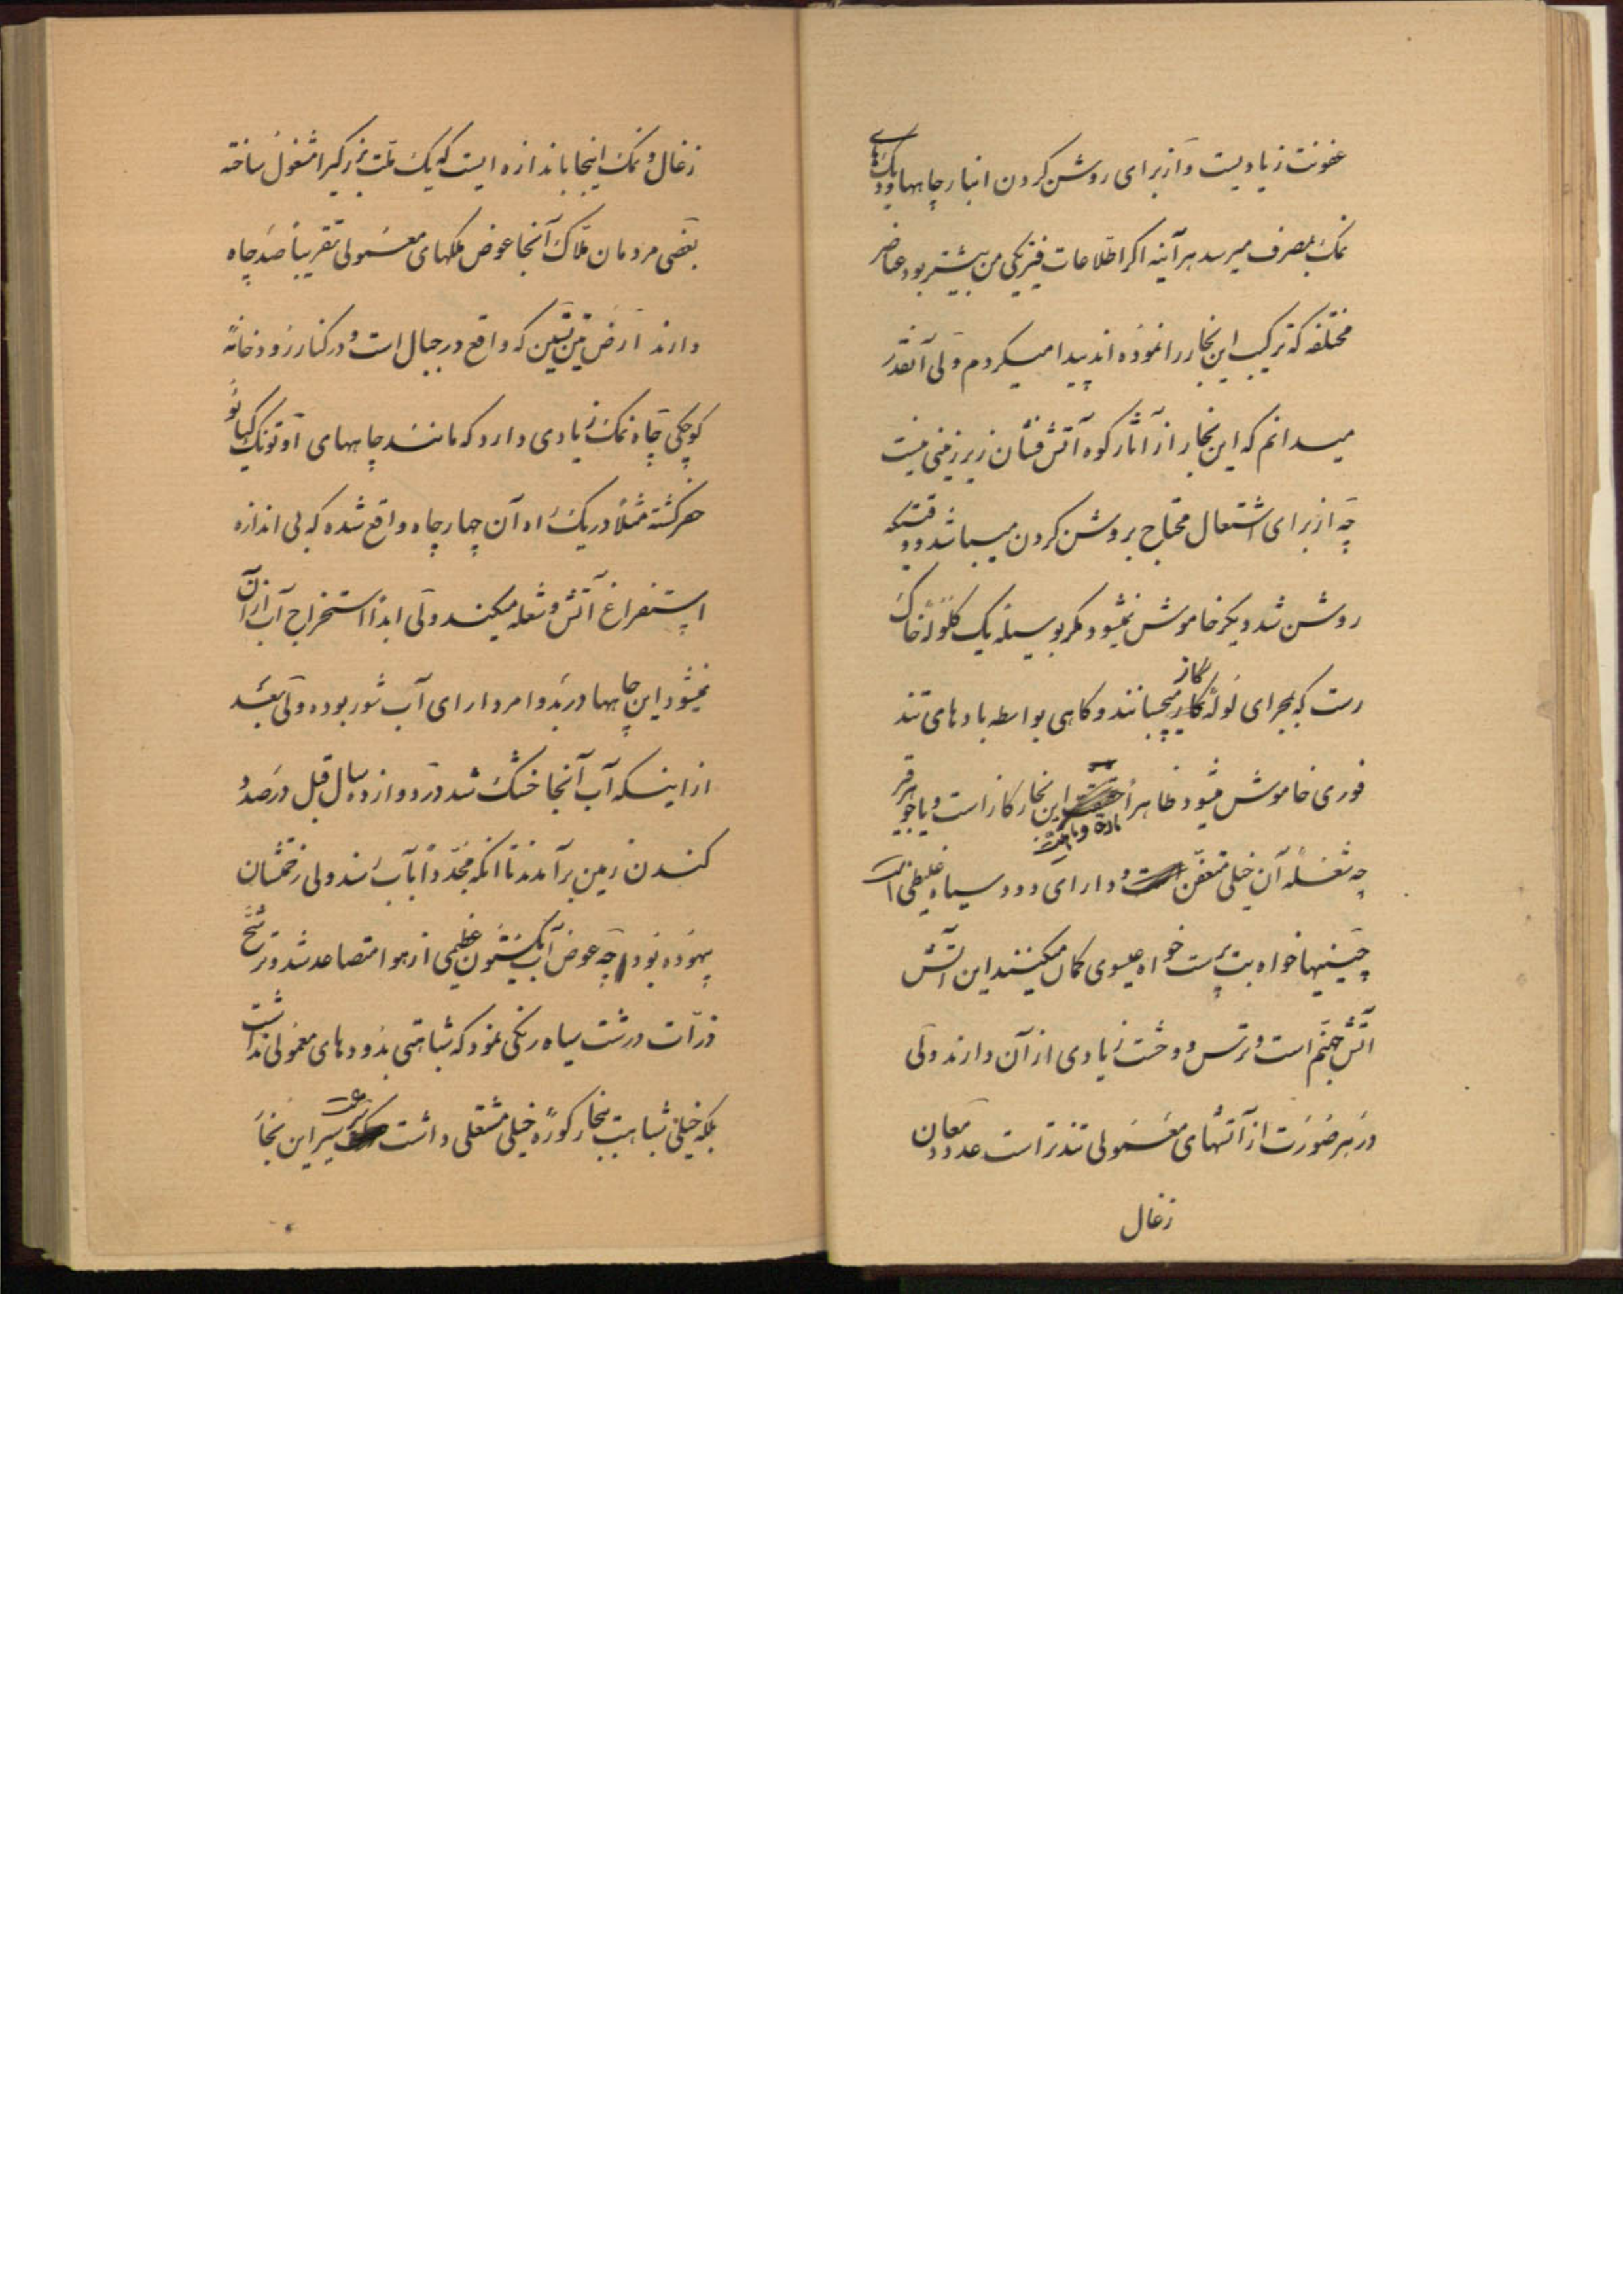 عفونت زیادیست و از برای روشن کردن انبار چاهها و دیک های
نمک بمصرف میرسد هر آینه اکر اطلاعات فیزیکی من بیشتر بود عناصر
مختلفه که ترکیب این بخار را نموده اند پیدا میکردم ولی آنقدر
میدانم که این بخار از آثار کوه آتش فشان زیر زمینی نیست
چه از برای اشتعال محتاج بروشن کردن میباشد و وقتیکه
روشن شد دیکر خاموش نمیشود مکر بوسیله یک کلوله خاک
رست که بمجرای لوله کاز میچسبانند و کاهی بواسطه بادهای تند
فوری خاموش میشود ظاهراً این بخار کاز است و یا جوهر قیر
چه شعله آن خیلی متعفن و دارای دود سیاه غلیظی است
چینیها خواه بت پرست خواه عیسوی کمان میکنند این آتش
آتش جهنم است و ترس و وحشت زیادی از آن دارند ولی
در هر صورت از آتشهای معمولی تندتر است عدد معادن
زغال
زغال و نمک اینجا باندازه ایست که یک ملت بزرکیرا مشغول ساخته
بعضی مردمان ملاک آنجا عوض ملکهای معمولی تقریباً صد چاه
دارند ارض که واقع در جبال است و در کنار رودخانه
کوچکی چاه نمک زیادی دارد که مانند چاههای اوتونک کیائو
حفر کشته مثلاً در یک راه آن چهار چاه واقع شده که بی اندازه
استفراغ آتش و شعله میکند ولی ابداً استخراج آب از آن
نمیشود این چاهها در بدو امر دارای آب شور بوده ولی بعد
از اینکه آب آنجا خشک شد در دوازده سال قبل در صدد
کندن زمین برآمدند تا آنکه مجدداً بآب رسند ولی زحمتشان
بیهوده بود چه عوض آب یک ستون عظیمی از هوا متصاعد شد و ترشح
ذرات درشت سیاه رنکی نمود که شباهتی بدودهای معمولی نداشت
بلکه خیلی شباهت ببخار کوره خیلی مشتعلی داشت سرعت سیر این بخار